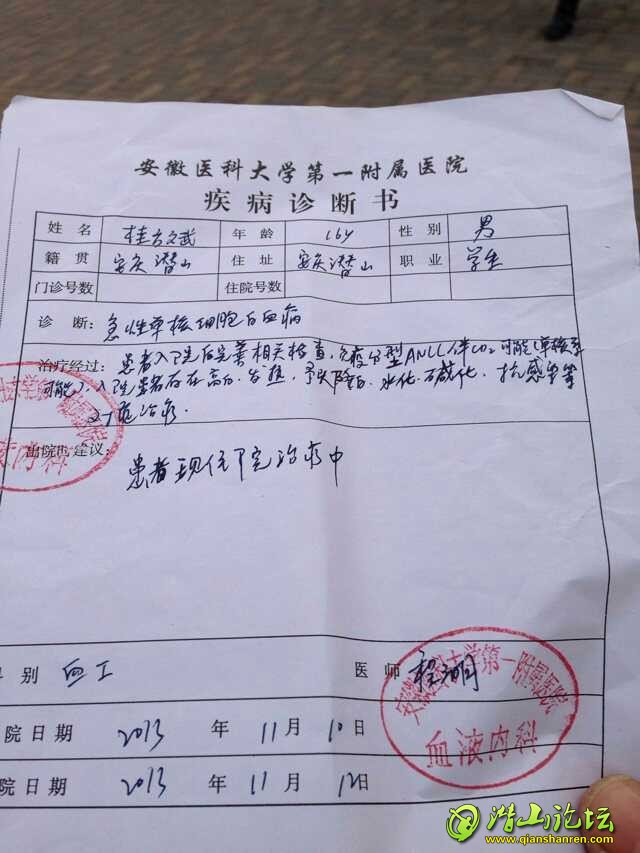 安徽医科大学第一附属医院
疾病诊断书
姓名 桂方文武 年龄 16y 性别 男
籍贯 安庆潜山 住址 安庆潜山 职业 学生
门诊号数 住院号数
诊断: 急性单核细胞白血病
治疗经过: 患者入院后完善相关检查, 免疫分型ANLL 可能(单核系
可能), 入院患者存在高白、发热, 予以降白、水化、碱化、抗感染等
对症治疗.
出院时建议:
患者现住院治疗中
科大学第一附属医院
液内科
别 血工 医师 程
院日期 2013 年 11 月 10 日
院日期 2013 年 11 月 12 日
安徽医科大学第一附属医院
血液内科
潜山论坛
www.qianshanren.com